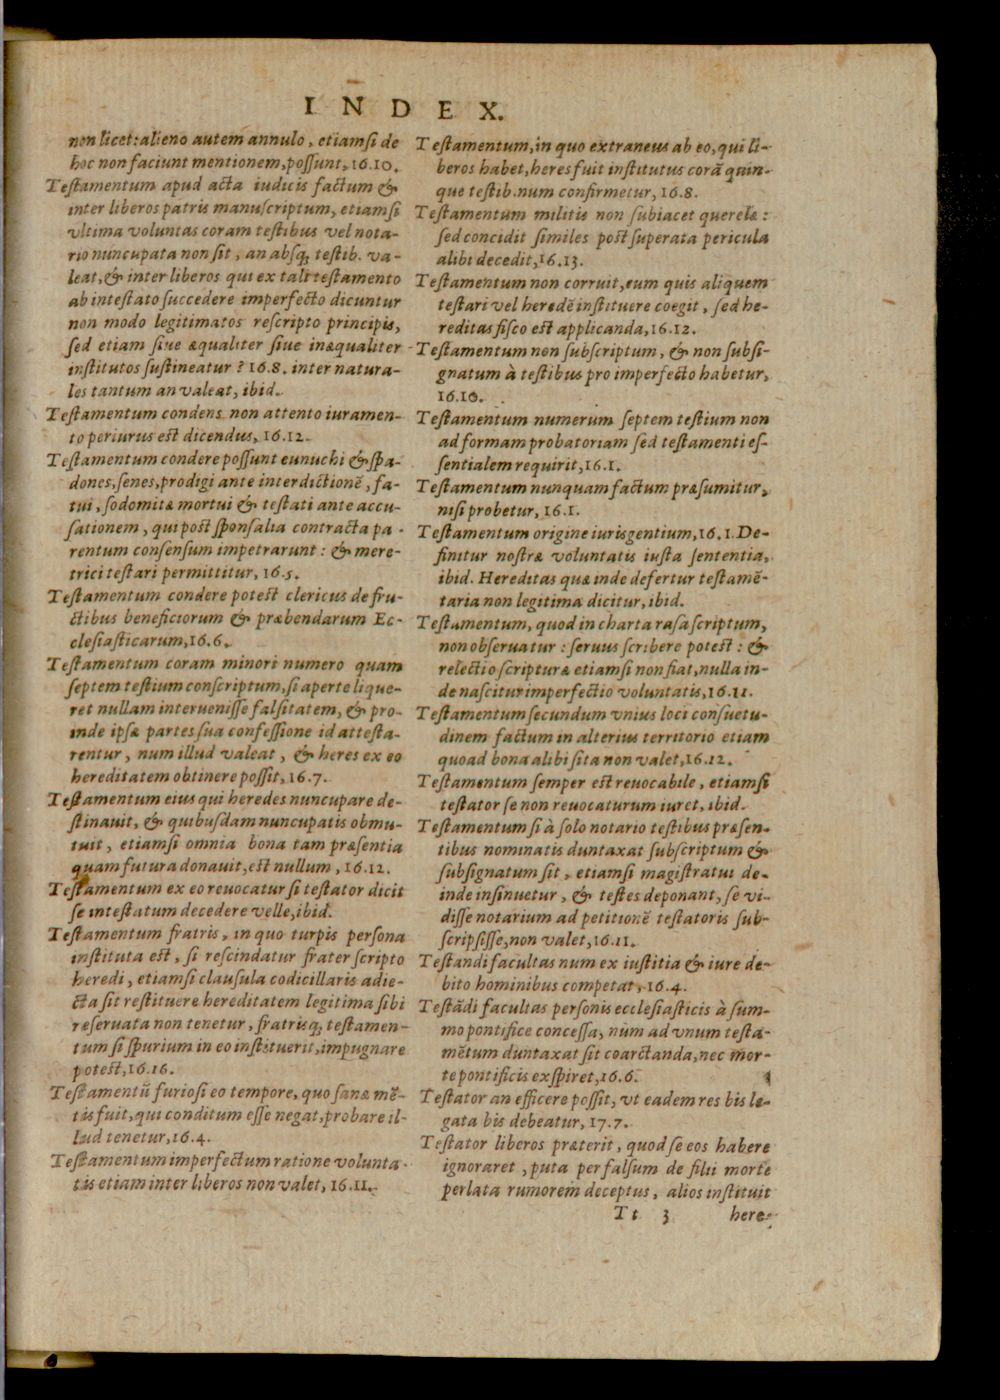 INDEX.
non licet: alieno autem annulo, etiamsi de
hoc non faciunt mentionem, possunt, 16.10.
Testamentum apud acta iudicis factum &
inter liberos patris manuscriptum, etiamsi
vltima voluntas coram testibus vel nota-
rio nuncupata non sit, an absq; testib. va-
leat, & inter liberos qui ex tali testamento
ab intestato succedere imperfecto dicuntur
non modo legitimatos rescripto principis,
sed etiam siue æqualiter siue inæqualiter
institutos sustineatur? 16.8. inter natura-
les tantum an valeat, ibid.
Testamentum condens non attento iuramen-
to periurus est dicendus, 16.12.
Testamentum condere possunt eunuchi & spa-
dones, senes, prodigi ante interdictionē, fa-
tui, sodomitæ mortui & testati ante accu-
sationem, qui post sponsalia contracta pa-
rentum consensum impetrarunt: & mere-
trici testari permittitur, 16.5.
Testamentum condere potest clericus de fru-
ctibus beneficiorum & præbendarum Ec-
clesiasticarum, 16.6.
Testamentum coram minori numero quam
septem testium conscriptum, si aperte lique-
ret nullam interuenisse falsitatem, & pro-
inde ipsæ partes sua confessione id attesta-
rentur, num illud valeat, & heres ex eo
hereditatem obtinere possit, 16.7.
Testamentum eius qui heredes nuncupare de-
stinauit, & quibusdam nuncupatis obmu-
tuit, etiamsi omnia bona tam præsentia
quam futura donauit, est nullum, 16.12.
Testamentum ex eo reuocatur si testator dicit
se intestatum decedere velle, ibid.
Testamentum fratris, in quo turpis persona
instituta est, si rescindatur frater scripto
heredi, etiamsi clausula codicillaris adie-
cta sit restituere hereditatem legitima sibi
reseruata non tenetur, fratrisq; testamen-
tum si spurium in eo instituerit, impugnare
potest, 16.16.
Testamentū furiosi eo tempore, quo sanæ mē-
tis fuit, qui conditum esse negat, probare il-
lud tenetur, 16.4.
Testamentum imperfectum ratione volunta-
tis etiam inter liberos non valet, 16.11.
Testamentum, in quo extraneus ab eo, qui li-
beros habet, heres fuit institutus corā quin-
que testib. num confirmetur, 16.8.
Testamentum militis non subiacet querelæ:
sed concidit similes post superata pericula
alibi decedit, 16.13.
Testamentum non corruit, eum quis aliquem
testari vel heredē instituere coegit, sed he-
reditas fisco est applicanda, 16.12.
Testamentum non subscriptum, & non subsi-
gnatum à testibus pro imperfecto habetur,
16.10.
Testamentum numerum septem testium non
ad formam probatoriam sed testamenti es-
sentialem requirit, 16.1.
Testamentum nunquam factum præsumitur,
nisi probetur, 16.1.
Testamentum origine iurisgentium, 16.1. De-
finitur nostræ voluntatis iusta sententia,
ibid. Hereditas quæ inde defertur testamē-
taria non legitima dicitur, ibid.
Testamentum, quod in charta rasa scriptum,
non obseruatur: seruus scribere potest: &
relectio scripturæ etiamsi non fiat, nulla in-
de nascitur imperfectio voluntatis, 16.11.
Testamentum secundum vnius loci consuetu-
dinem factum in alterius territorio etiam
quoad bona alibi sita non valet, 16.12.
Testamentum semper est reuocabile, etiamsi
testator se non reuocaturum iuret, ibid.
Testamentum si à solo notario testibus præsen-
tibus nominatis duntaxat subscriptum &
subsignatum sit, etiamsi magistratui de-
inde insinuetur, & testes deponant, se vi-
disse notarium ad petitionē testatoris sub-
scripsisse, non valet, 16.11.
Testandi facultas num ex iustitia & iure de-
bito hominibus competat, 16.4.
Testādi facultas personis ecclesiasticis à sum-
mo pontifice concessa, num ad vnum testa-
mētum duntaxat sit coarctanda, nec mor-
te pontificis exspiret, 16.6.
Testator an efficere possit, vt eadem res bis le-
gata bis debeatur, 17.7.
Testator liberos præterit, quod se eos habere
ignoraret, puta per falsum de filii morte
perlata rumorem deceptus, alios instituit
Tt 3 here-